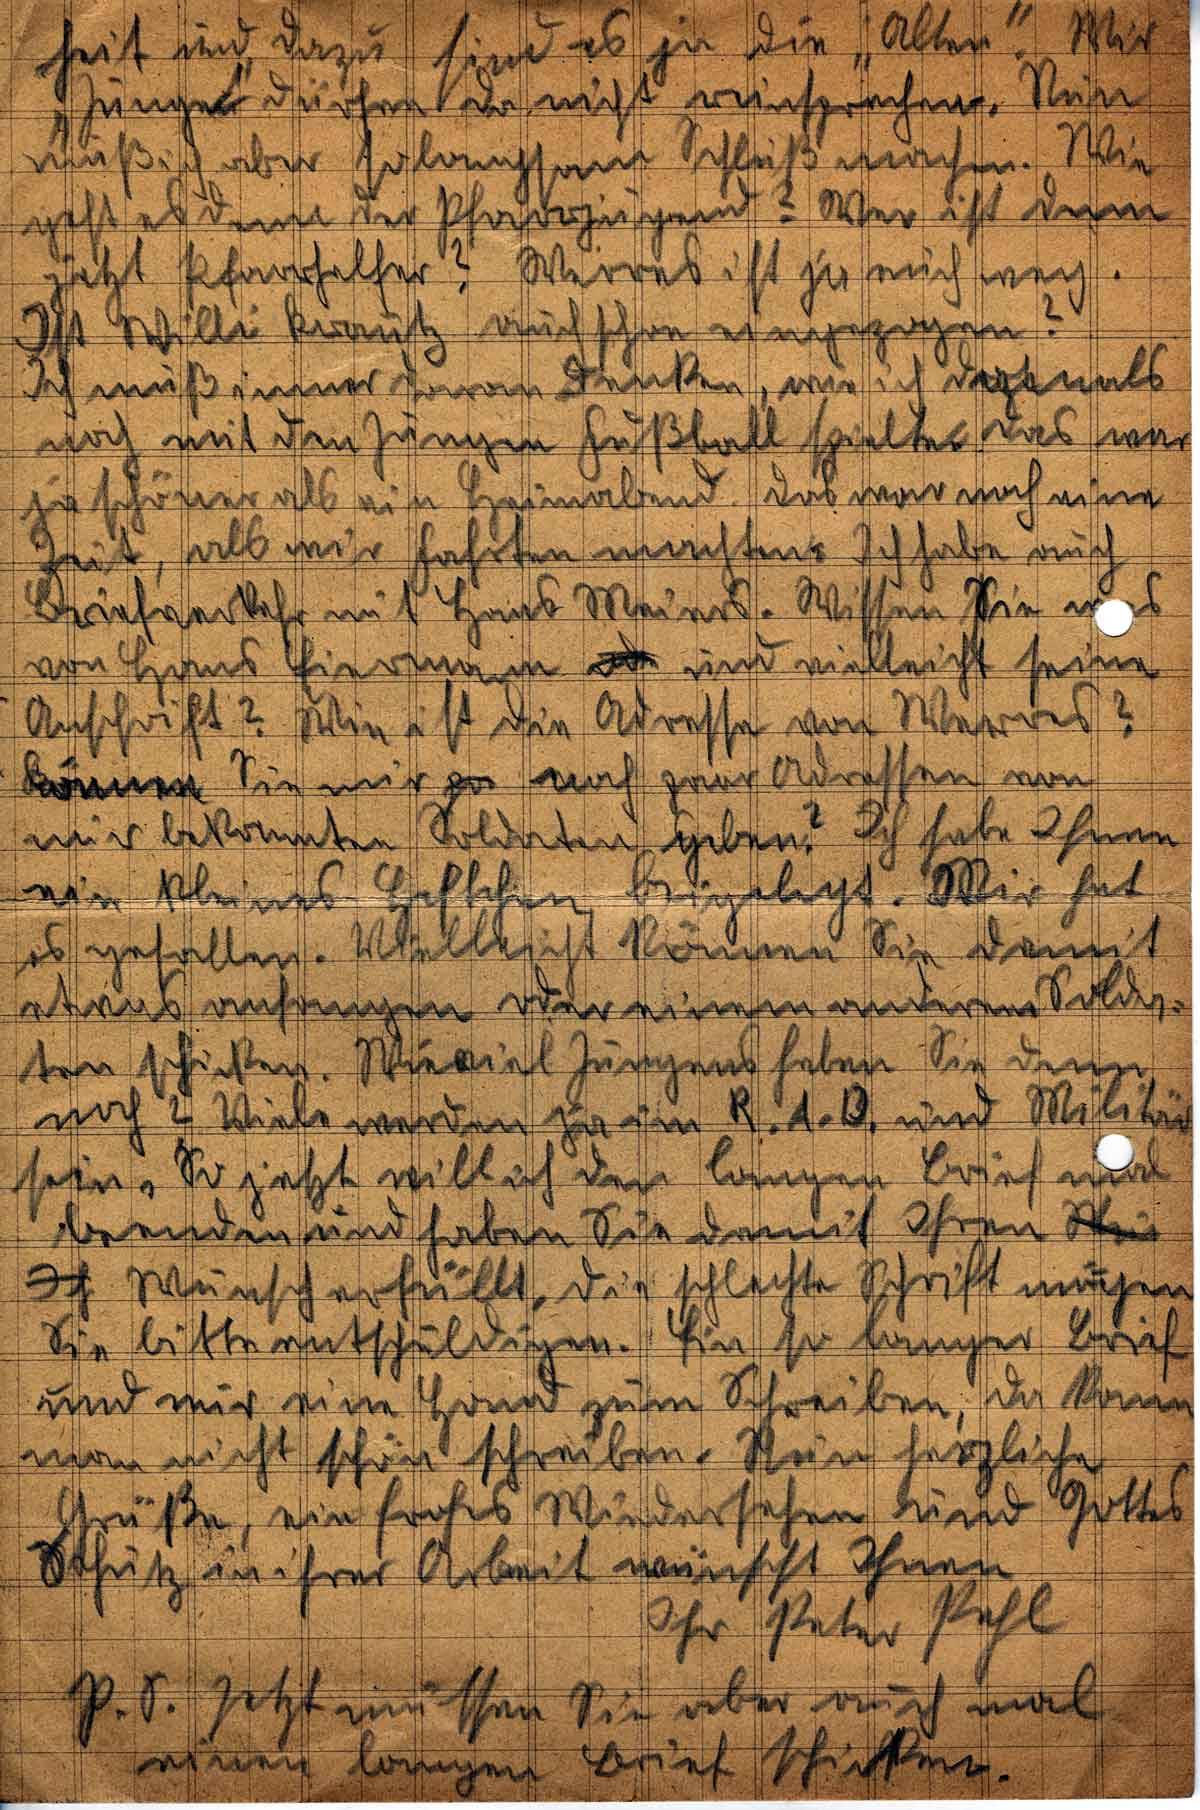 heit und dazu sind es ja die „Alten“. Wir
„Jungen“ dürfen da nicht reinsprechen. Nun
muß ich aber so langsam Schluß machen. Wie
geht es denn der Pfarrjugend? Wer ist denn
jetzt Pfarrhelfer? Werres ist ja auch weg.
Ist Willi Krautz auch schon eingezogen?
Ich muß immer daran denken, wie ich damals
noch mit den Jungen Fußball spielte. Das war
ja schöner als ein Heimabend. Das war noch eine
Zeit, als wir Fahrten machten. Ich habe auch
Briefverkehr mit Hans Meiers. Wissen Sie was
von Hans Eiermann und vielleicht seine
Anschrift? Wie ist die Adresse von Werres?
Können Sie mir noch paar Adressen von
mir bekannten Soldaten geben? Ich habe Ihnen
ein kleines Heftchen beigelegt. Mir hat
es gefallen. Vielleicht können Sie damit
etwas anfangen oder einem anderen Solda-
ten schicken. Wieviel Jungens haben Sie denn
noch? Viele werden ja im R.A.D. und Militär
sein. So jetzt will ich den langen Brief mal
beenden und haben Sie damit Ihren
Wunsch erfüllt. Die schlechte Schrift mögen
Sie bitte entschuldigen. Ein so langer Brief
und nur eine Hand zum Schreiben, da kann
man nicht schön schreiben. Nun herzliche
Grüße, ein frohes Wiedersehen und Gottes
Schutz in ihrer Arbeit wünscht Ihnen
Ihr Peter Pehl
P.S. Jetzt müssen Sie aber auch mal
einen langen Brief schicken.